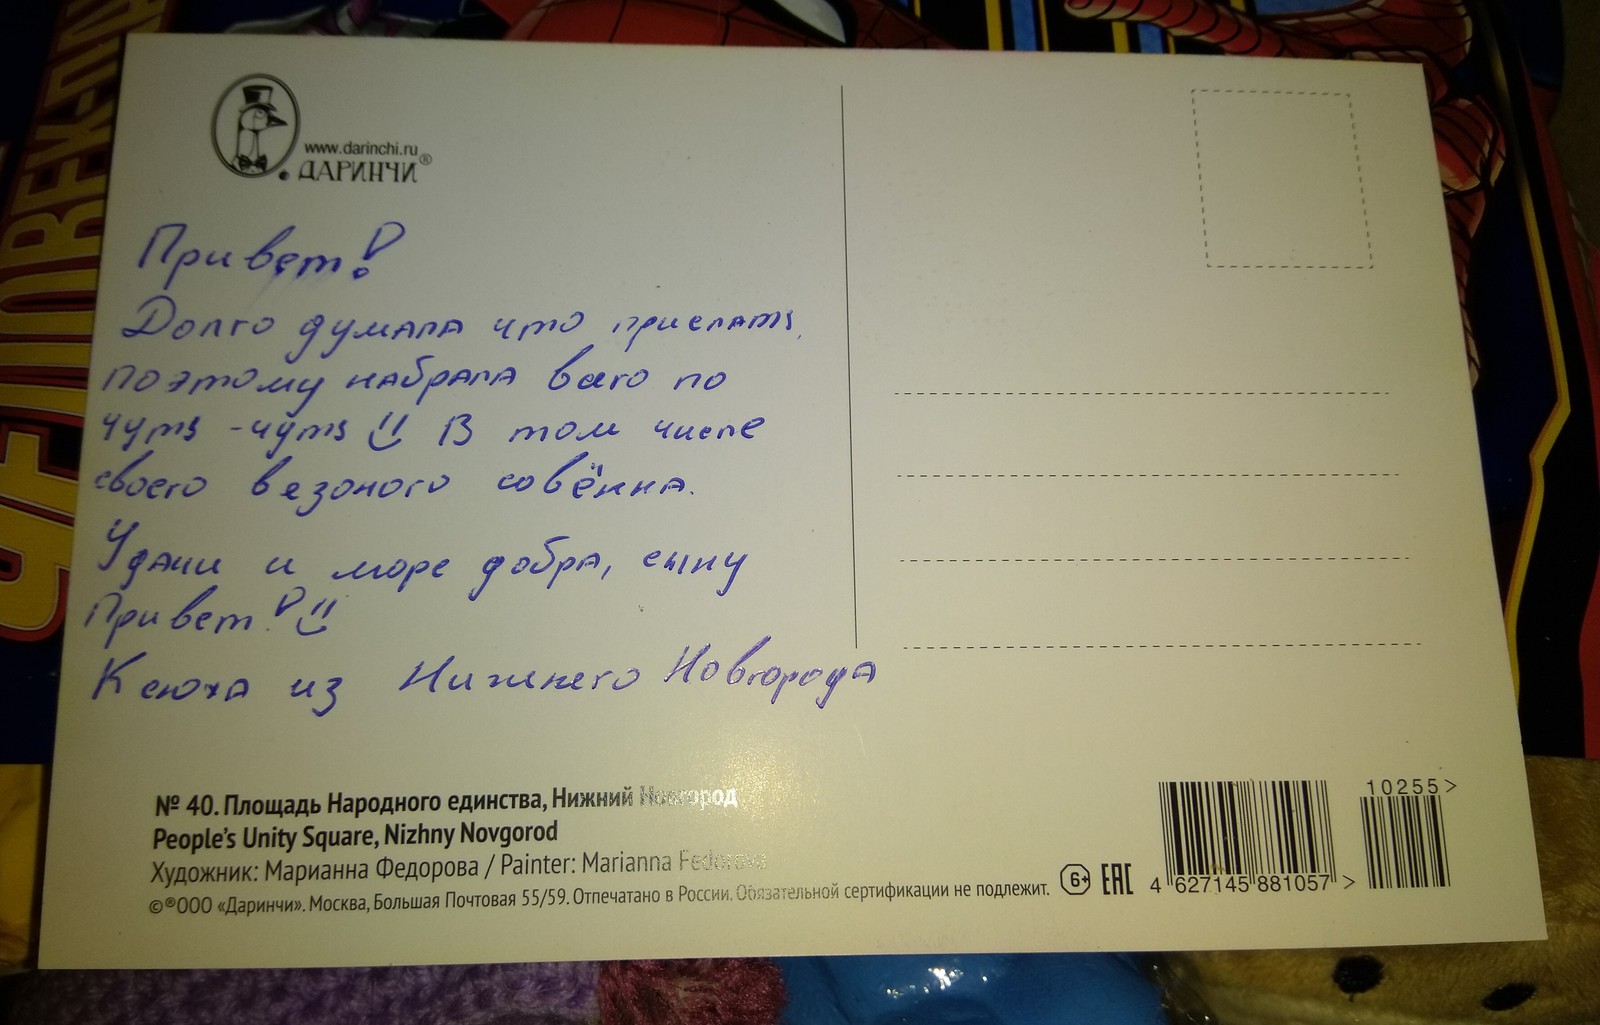 ЧЕЛОВЕК-ПА
www.darinchi.ru
ДАРИНЧИ®
Привет!
Долго думала что прислать,
поэтому набрала всего по
чуть-чуть!! В том числе
своего вязоного совёнка.
Удачи и море добра, сыну
Привет!
Ксюха из Нижнего Новгорода
№ 40. Площадь Народного единства, Нижний Новгород
People's Unity Square, Nizhny Novgorod
Художник: Марианна Федорова / Painter: Marianna Fedorova
©®ООО «Даринчи». Москва, Большая Почтовая 55/59. Отпечатано в России. Обязательной сертификации не подлежит.
6+ EAC
4 627145 881057 >
10255 >